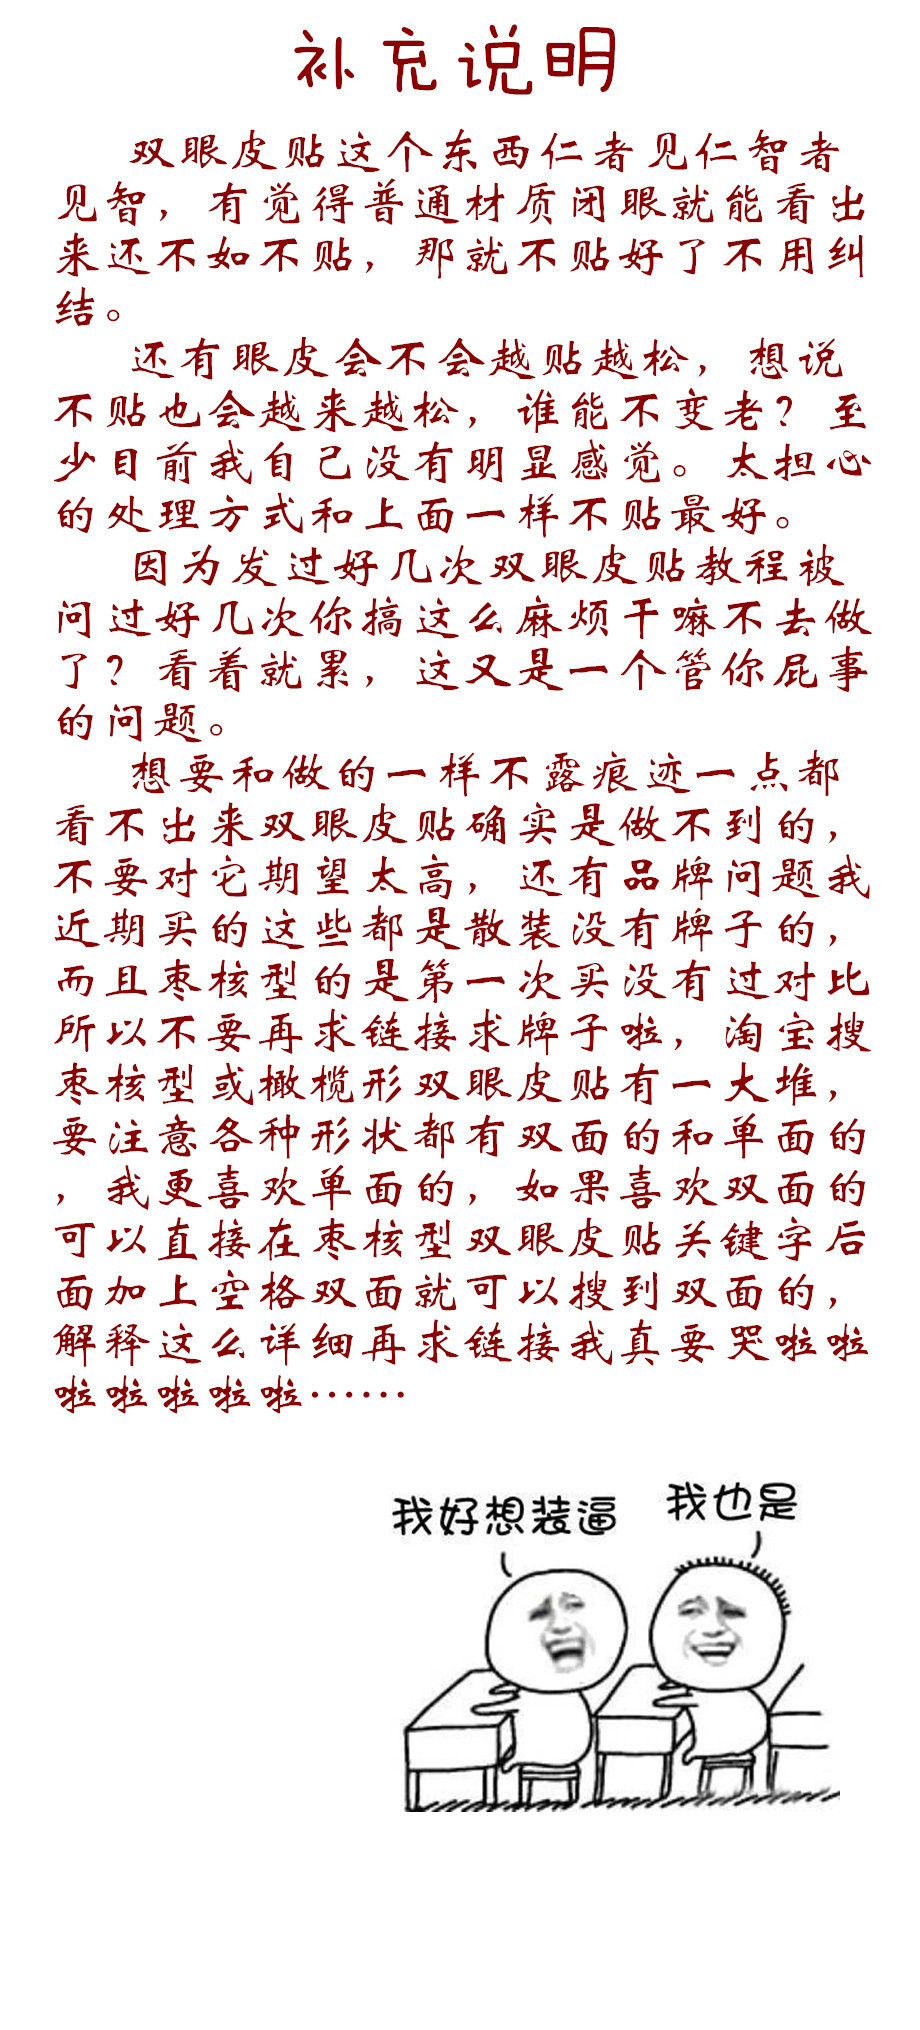 补充说明
双眼皮贴这个东西仁者见仁智者
见智，有觉得普通材质闭眼就能看出
来还不如不贴，那就不贴好了不用纠
结。
还有眼皮会不会越贴越松，想说
不贴也会越来越松，谁能不变老？至
少目前我自己没有明显感觉。太担心
的处理方式和上面一样不贴最好。
因为发过好几次双眼皮贴教程被
问过好几次你搞这么麻烦干嘛不去做
了？看着就累，这又是一个管你屁事
的问题。
想要和做的一样不露痕迹一点都
看不出来双眼皮贴确实是做不到的，
不要对它期望太高，还有品牌问题我
近期买的这些都是散装没有牌子的，
而且枣核型的是第一次买没有过对比
所以不要再求链接求牌子啦，淘宝搜
枣核型或橄榄形双眼皮贴有一大堆，
要注意各种形状都有双面的和单面的
，我更喜欢单面的，如果喜欢双面的
可以直接在枣核型双眼皮贴关键字后
面加上空格双面就可以搜到双面的，
解释这么详细再求链接我真要哭啦啦
啦啦啦啦啦……
我好想装逼
我也是